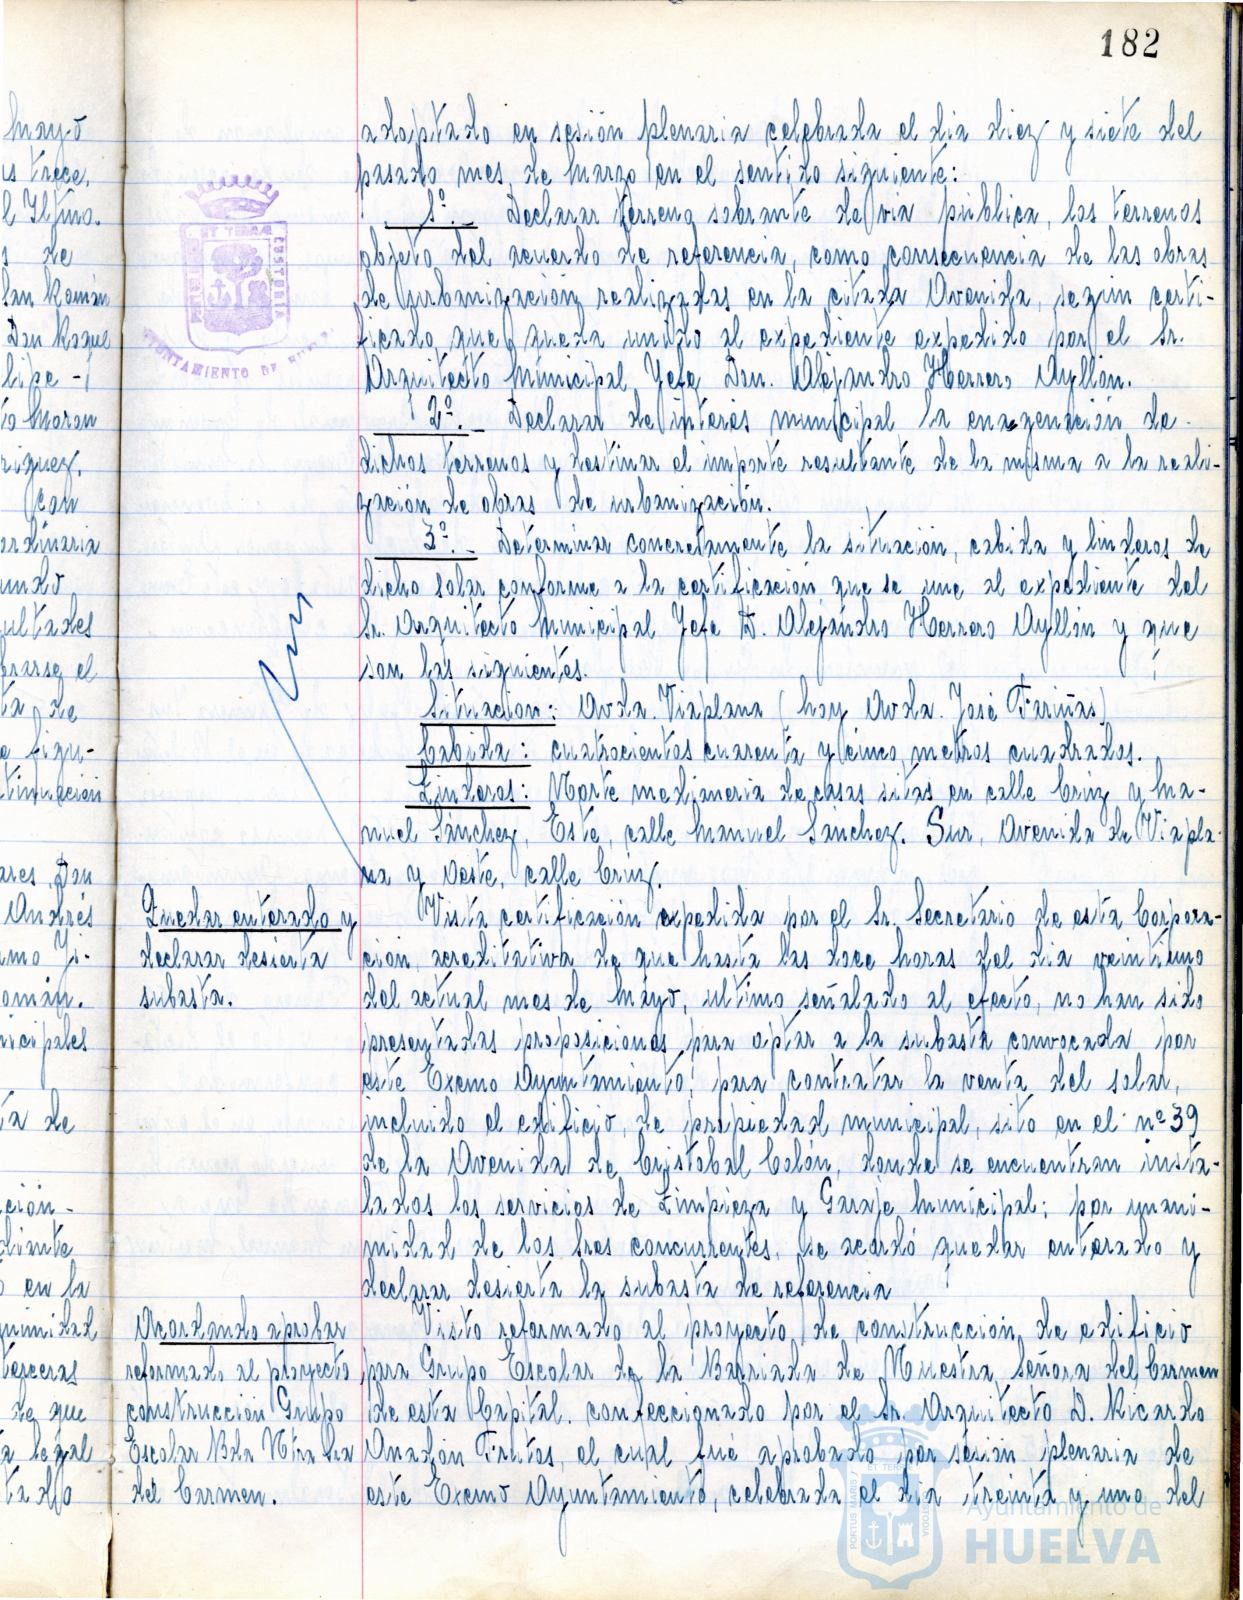 182
adoptado en sesión plenaria celebrada el dia diez y siete del
pasado mes de marzo en el sentido siguiente:
1º.- Declarar terreno sobrante de via pública, los terrenos
objeto del acuerdo de referencia, como consecuencia de las obras
de urbanización realizadas en la citada Avenida, según certi-
ficado que queda unido al expediente expedido por el Sr.
Arquitecto Municipal Jefe Don Alejandro Herrero Ayllón.
2º.- Declarar de interés municipal la enagenación de
dichos terrenos y destinar el importe resultante de la misma a la reali-
zación de obras de urbanización.
3º.- Determinar concretamente la situación, cabida y linderos de
dicho solar conforme a la certificación que se une al expediente del
Sr. Arquitecto Municipal Jefe D. Alejandro Herrero Ayllón y que
son las siguientes.
Situacion: Avda. Viaplana (hoy Avda. José Fariñas)
Cabida: cuatrocientos cuarenta y cinco metros cuadrados.
Linderos: Norte medianeria de casas sitas en calle Cruz y Ma-
nuel Sánchez, Este, calle Manuel Sánchez. Sur, Avenida de Viapla-
na y Oeste, calle Cruz.
Quedar enterado y
declarar desierta
subasta.
Vista certificación expedida por el Sr. Secretario de esta Corpora-
ción, acreditativa de que hasta las doce horas del dia veintiuno
del actual mes de Mayo, ultimo señalado al efecto, no han sido
presentadas proposiciones para optar a la subasta convocada por
este Excmo Ayuntamiento, para contratar la venta del solar,
incluido el edificio, de propiedad municipal, sito en el nº 39
de la Avenida de Cristobal Colón, donde se encuentran insta-
lados los servicios de Limpieza y Garaje Municipal; por unani-
midad de los Sres concurrentes, se acordó quedar enterado y
declarar desierta la subasta de referencia
Acordando aprobar
reformado al proyecto
construcción Grupo
Escolar Bda Ntra Sra
del Carmen.
Visto reformado al proyecto de construccion de edificio
para Grupo Escolar de la Barriada de Nuestra Señora del Carmen
de esta Capital. confeccionado por el Sr. Arquitecto D. Ricardo
Anadón Frutos, el cual fué aprobado por sesión plenaria de
este Excmo Ayuntamiento, celebrada el dia treinta y uno del
Ayuntamiento de
HUELVA